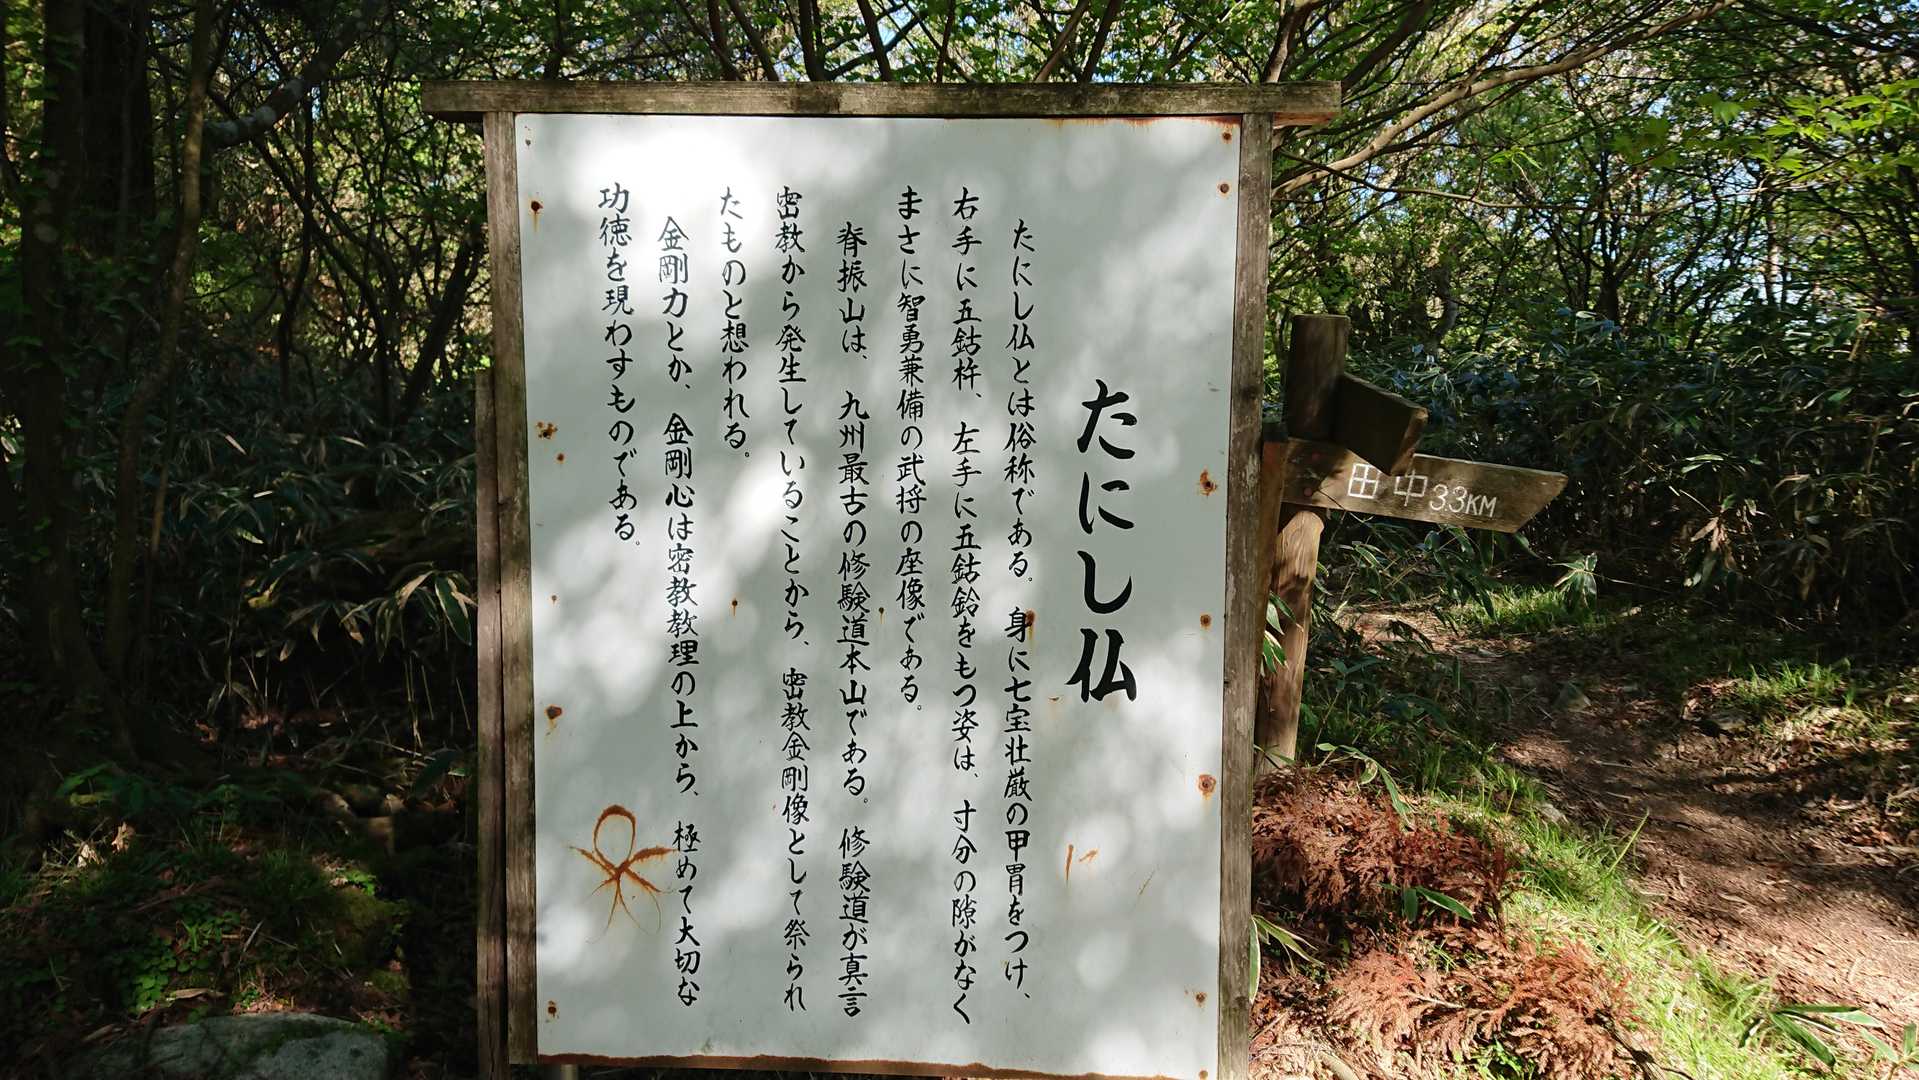 たにし仏
たにし仏とは俗称である。身に七宝壮厳の甲冑をつけ、
右手に五鈷杵、左手に五鈷鈴をもつ姿は、寸分の隙がなく
まさに智勇兼備の武将の座像である。
脊振山は、九州最古の修験道本山である。修験道が真言
密教から発生していることから、密教金剛像として祭られ
たものと想われる。
金剛力とか、金剛心は密教教理の上から、極めて大切な
功徳を現わすものである。
田中 3.3KM